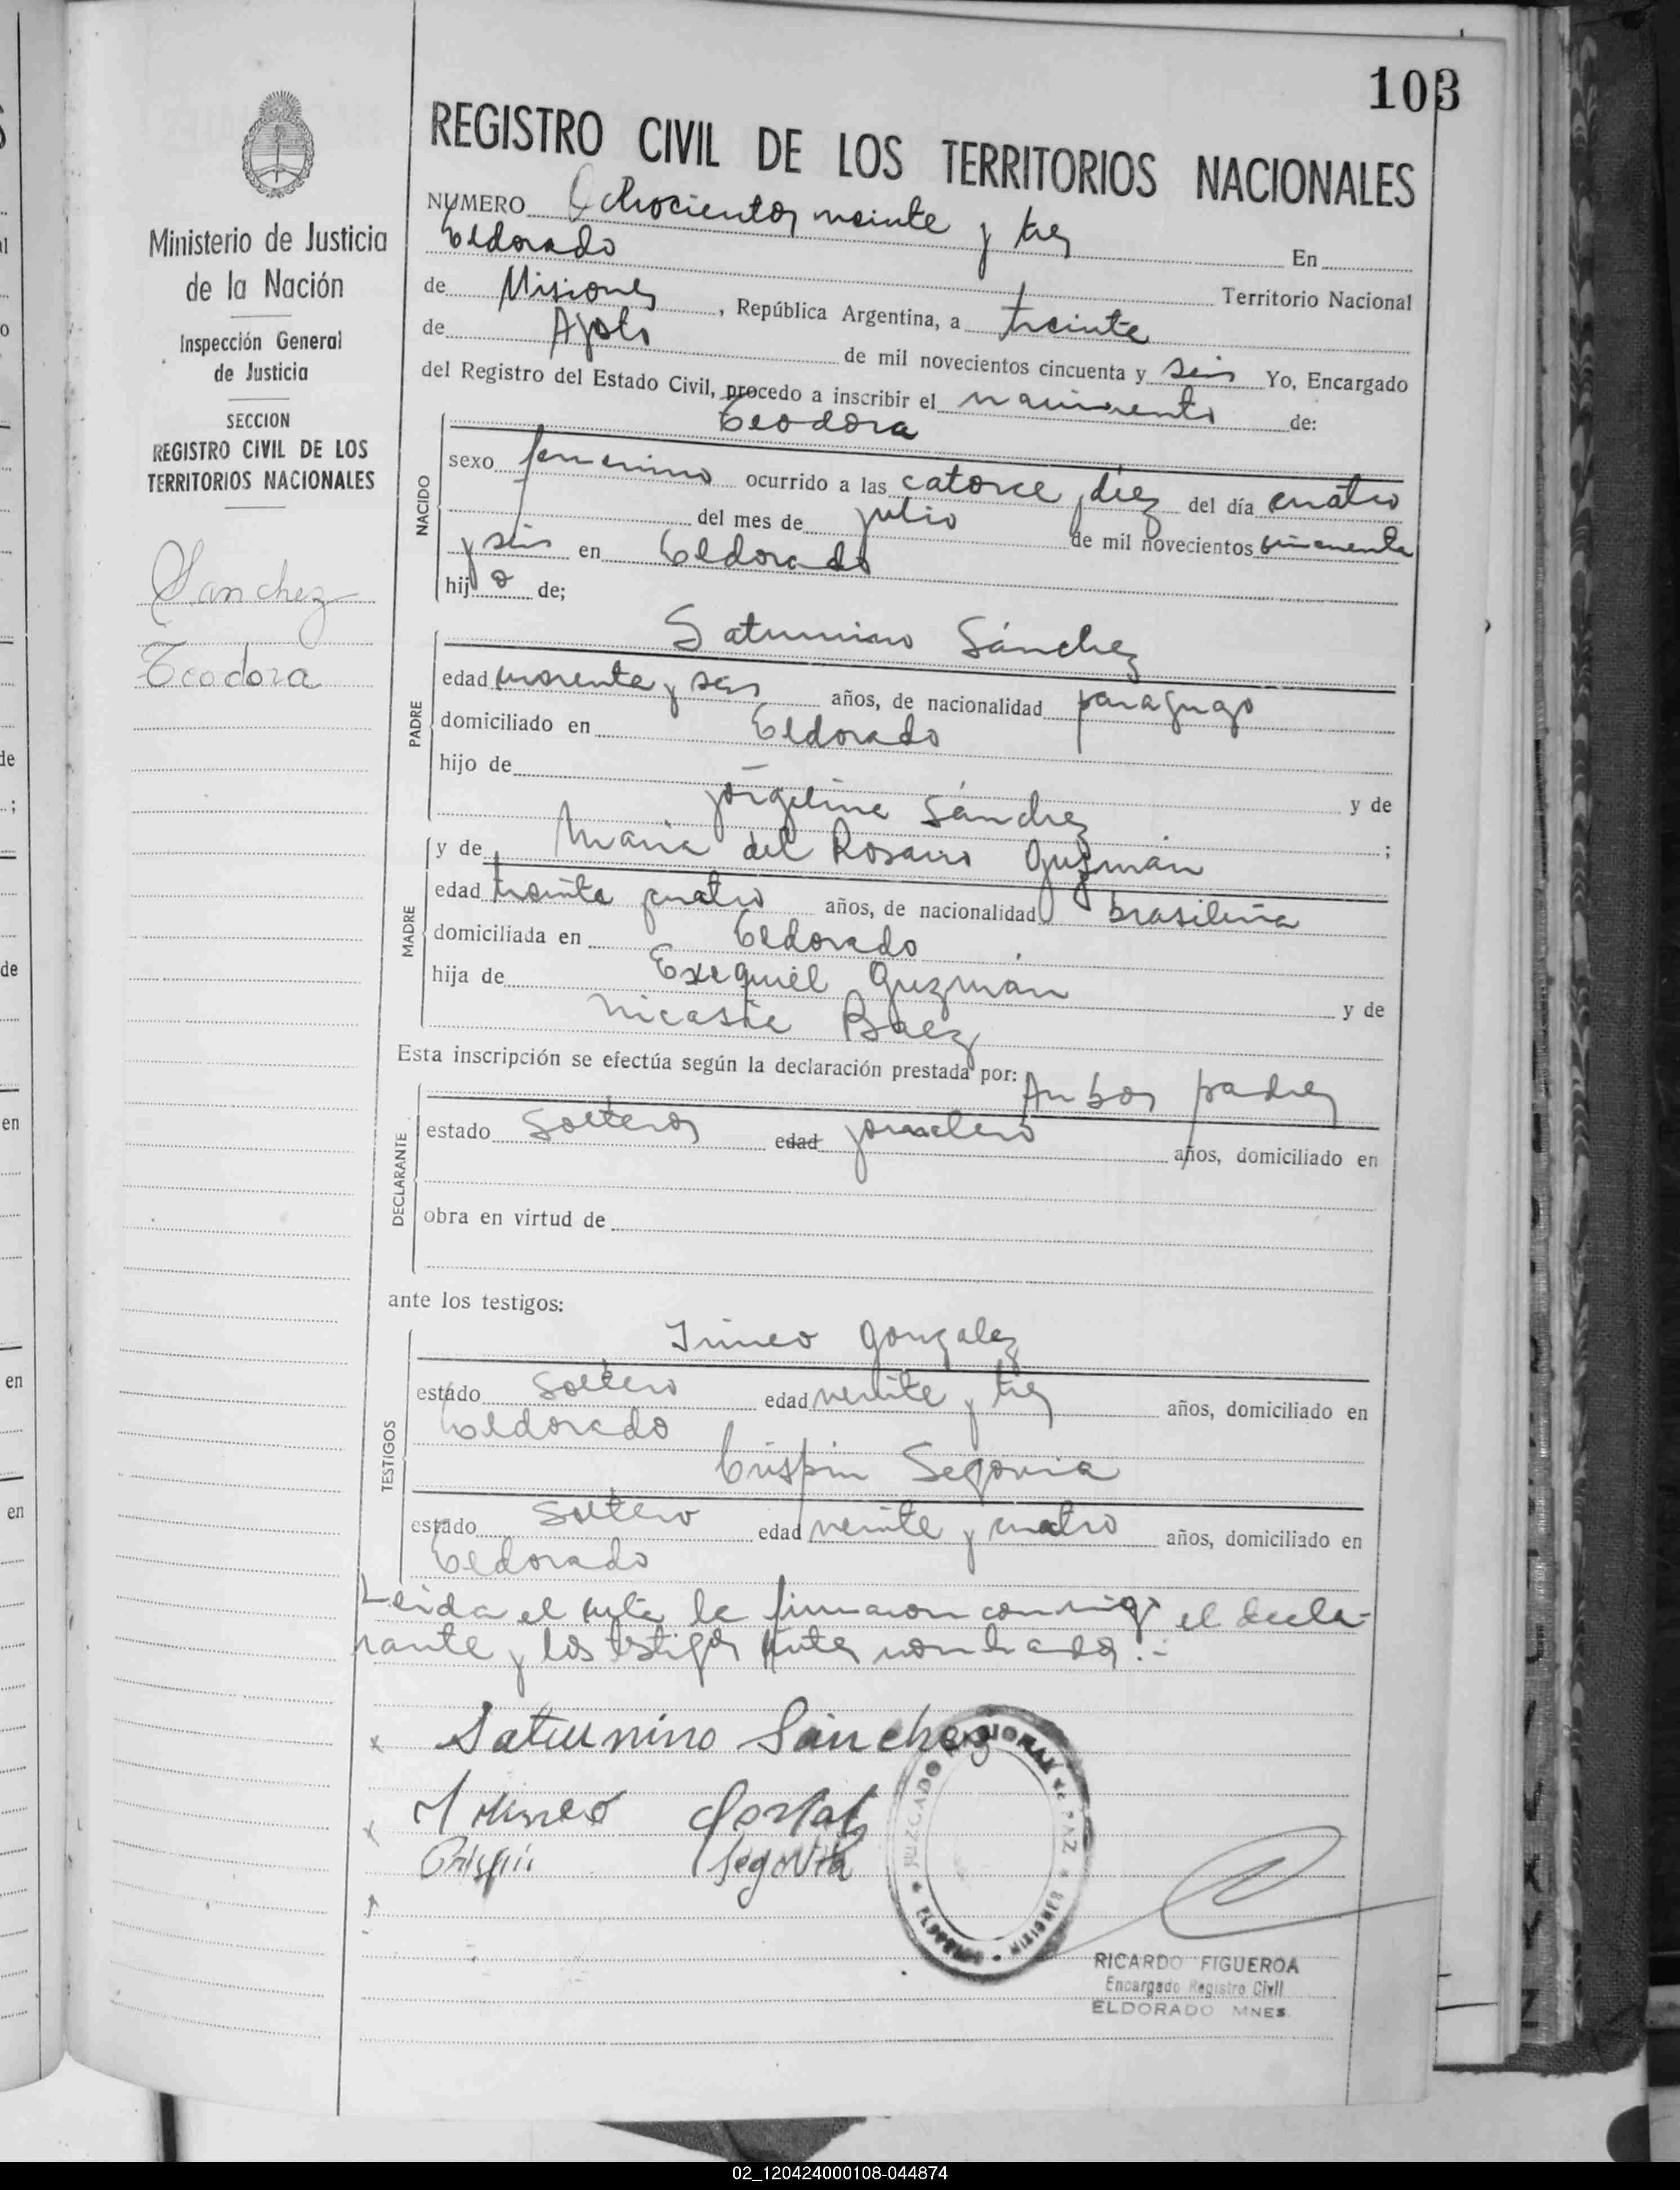 103
REGISTRO CIVIL DE LOS TERRITORIOS NACIONALES
Ministerio de Justicia
de la Nación
Inspección General
de Justicia
SECCION
REGISTRO CIVIL DE LOS
TERRITORIOS NACIONALES
Sanchez
Teodora
NUMERO Ochocientos veinte y tres En
Eldorado Territorio Nacional
de Misiones, República Argentina, a treinte
de Agosto de mil novecientos cincuenta y seis Yo, Encargado
del Registro del Estado Civil, procedo a inscribir el nacimiento de:
NACIDO
Teodora
sexo femenino ocurrido a las catorce, diez del día cuatro
del mes de julio de mil novecientos cincuenta
y seis en Eldorado
hij a de;
PADRE
Saturnino Sánchez
edad cuarenta y seis años, de nacionalidad paraguayo
domiciliado en Eldorado
hijo de
Jorgelina Sánchez y de
;
MADRE
y de Maria del Rosario Guzmán
edad treinta y cuatro años, de nacionalidad brasileña
domiciliada en Eldorado
hija de Exequiel Guzmán y de
Nicasia Baez
Esta inscripción se efectúa según la declaración prestada por: Ambos padres
DECLARANTE
estado Solteros edad jornalero años, domiciliado en
obra en virtud de
ante los testigos:
TESTIGOS
Irineo Gonzalez
estado Soltero edad veinte y tres años, domiciliado en
Eldorado
Crispin Segovia
estado Soltero edad veinte y cuatro años, domiciliado en
Eldorado
Leida el acta la firmaron conmigo el decla-
rante y los testigos antes nombrados.-
x Saturnino Sánchez
x Irineo
Crispin Segovia
JUZGADO DE PAZ
RICARDO FIGUEROA
Encargado Registro Civil
ELDORADO MNES.
de
;
de
en
en
en
02_120424000108-044874